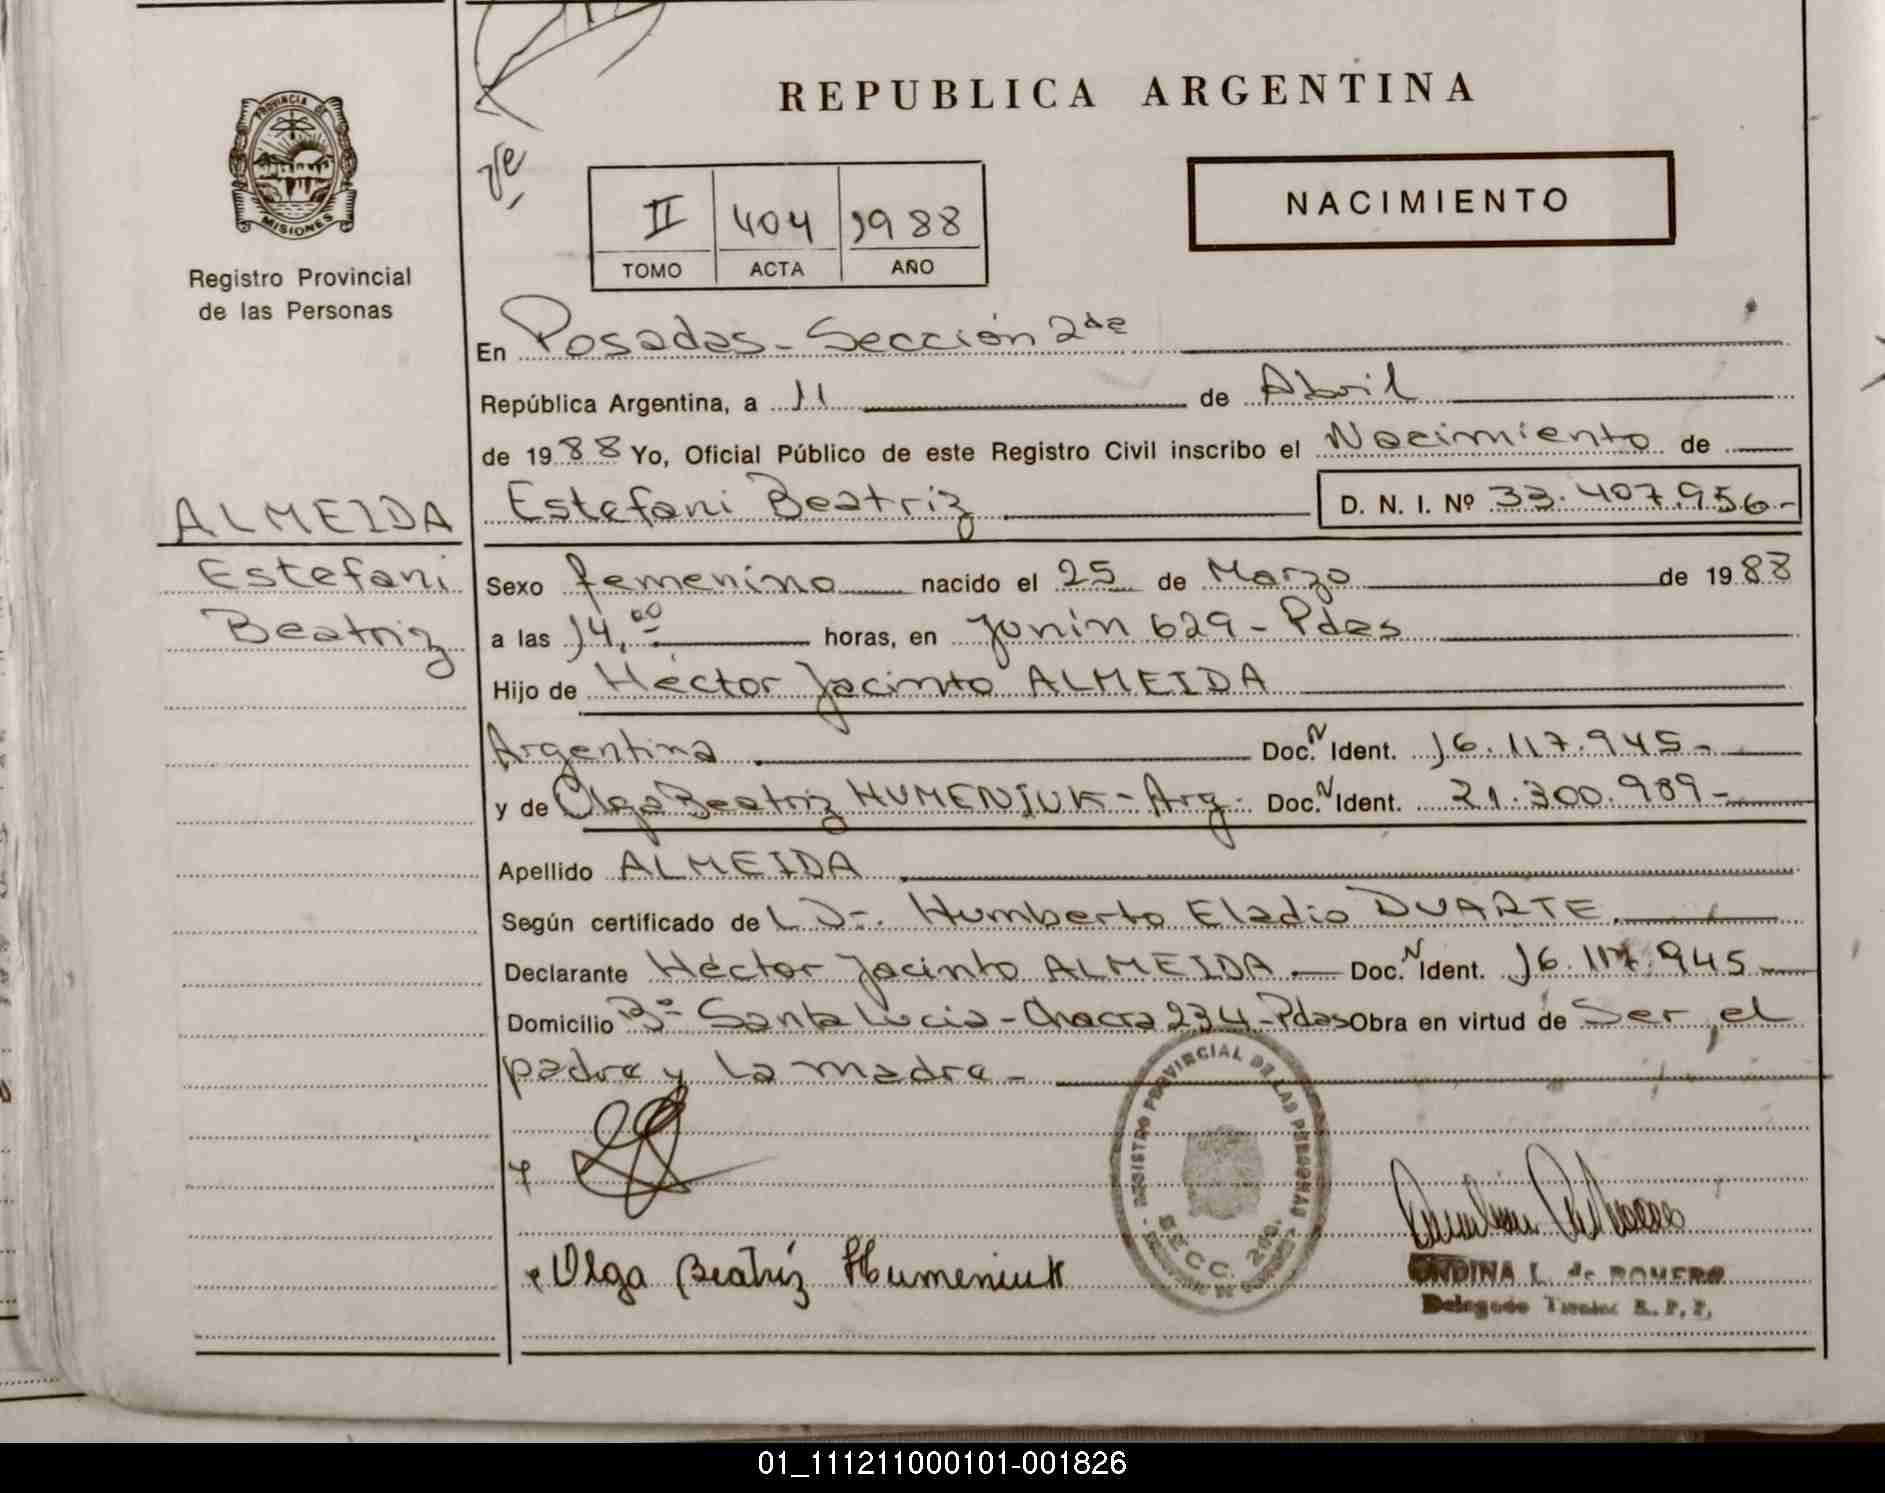 REPUBLICA ARGENTINA
PROVINCIA DE
MISIONES
Registro Provincial
de las Personas
II 404 1988
TOMO ACTA AÑO
NACIMIENTO
En Posadas - Sección 2da
República Argentina, a 11 de Abril
de 1988 Yo, Oficial Público de este Registro Civil inscribo el Nacimiento de
ALMEIDA
Estefani
Beatriz
Estefani Beatriz D. N. I. Nº 33.407.956-
Sexo femenino nacido el 25 de Marzo de 1988
a las 14,00 horas, en Junín 629 - Pdas
Hijo de Héctor Jacinto ALMEIDA
Argentina Doc. N Ident. 16.117.945-
y de Olga Beatriz HUMENIUK - Arg. Doc. N Ident. 21.300.989-
Apellido ALMEIDA
Según certificado de L Dr. Humberto Eladio DUARTE
Declarante Héctor Jacinto ALMEIDA Doc. N Ident. 16.117.945
Domicilio Bº Santa Lucia - Chacra 234 - Pdas Obra en virtud de Ser, el
padre y la madre -
REGISTRO PROVINCIAL DE LAS PERSONAS
SECC. 2da.
Olga Beatriz Humeniuk
ONDINA L. de ROMERO
Delegado Titular R. P. P.
01_111211000101-001826